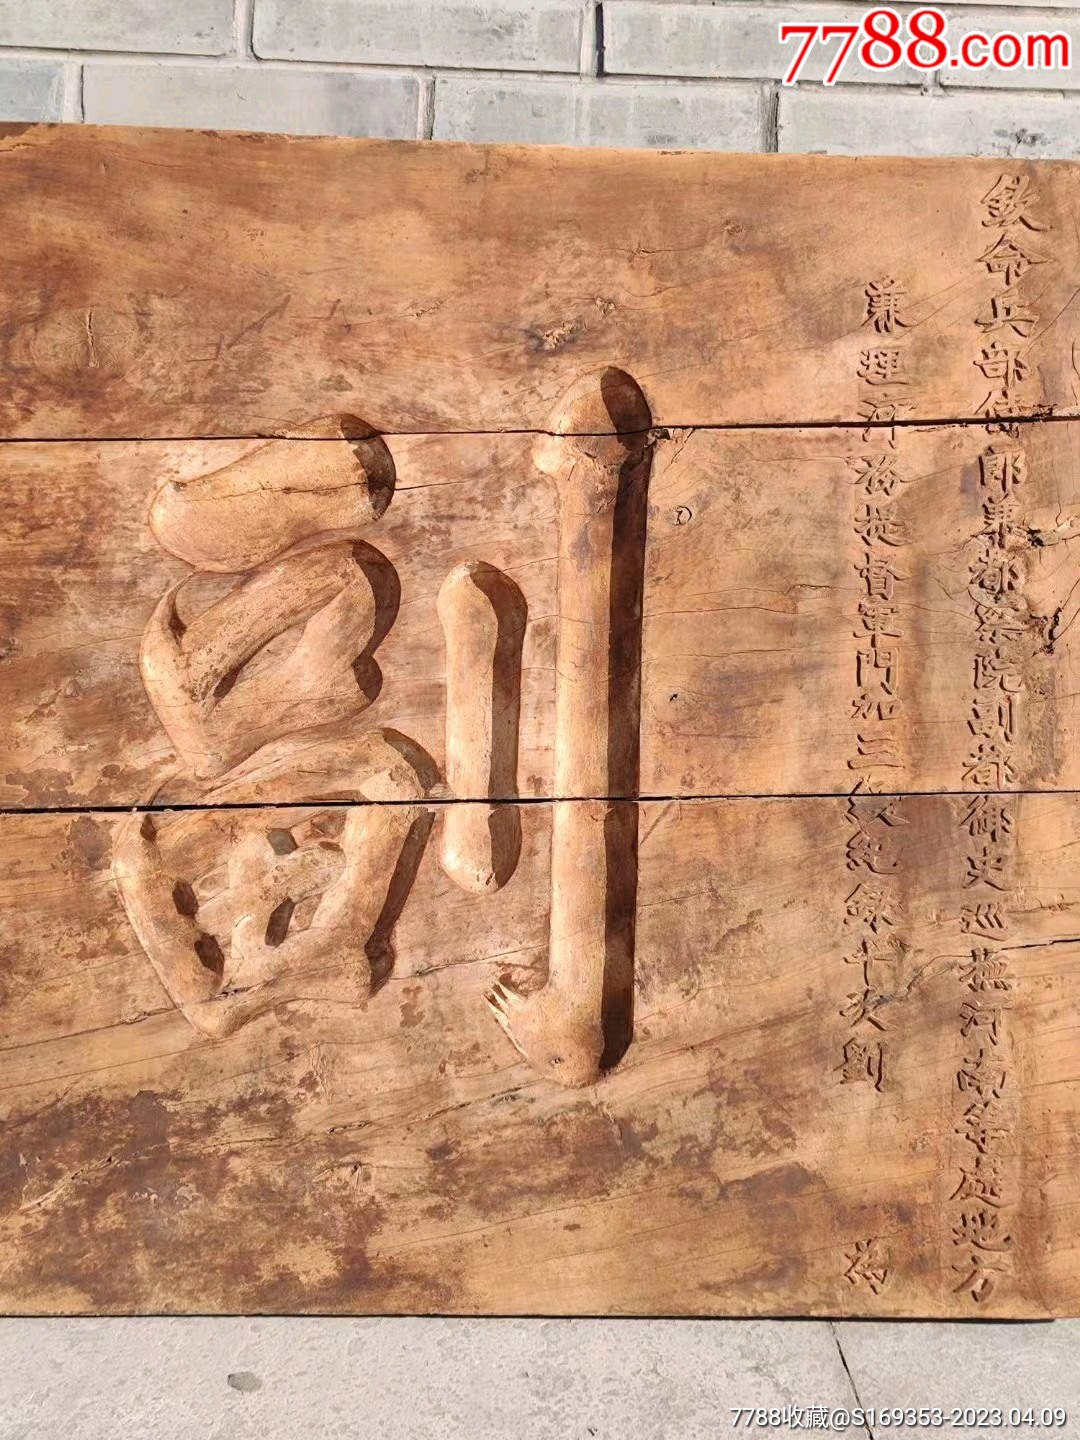 7788.com
欽命兵部侍郎兼都察院副都御史巡撫河南等處地方
兼理河務提督軍門加三級紀錄十次劉 為
副
7788收藏@S169353-2023.04.09